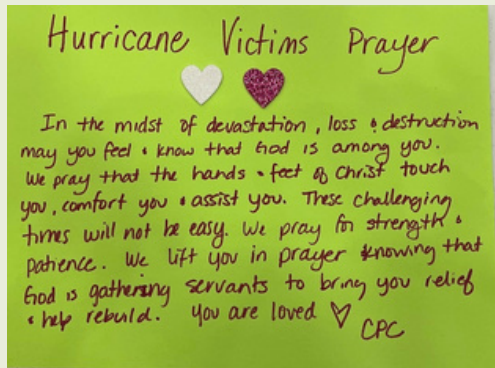 Hurricane Victims Prayer
In the midst of devastation, loss & destruction
may you feel & know that God is among you.
We pray that the hands & feet of Christ touch
you, comfort you & assist you. These challenging
times will not be easy. We pray for strength &
patience. We lift you in prayer knowing that
God is gathering servants to bring you relief
& help rebuild. You are loved ♡
CPC